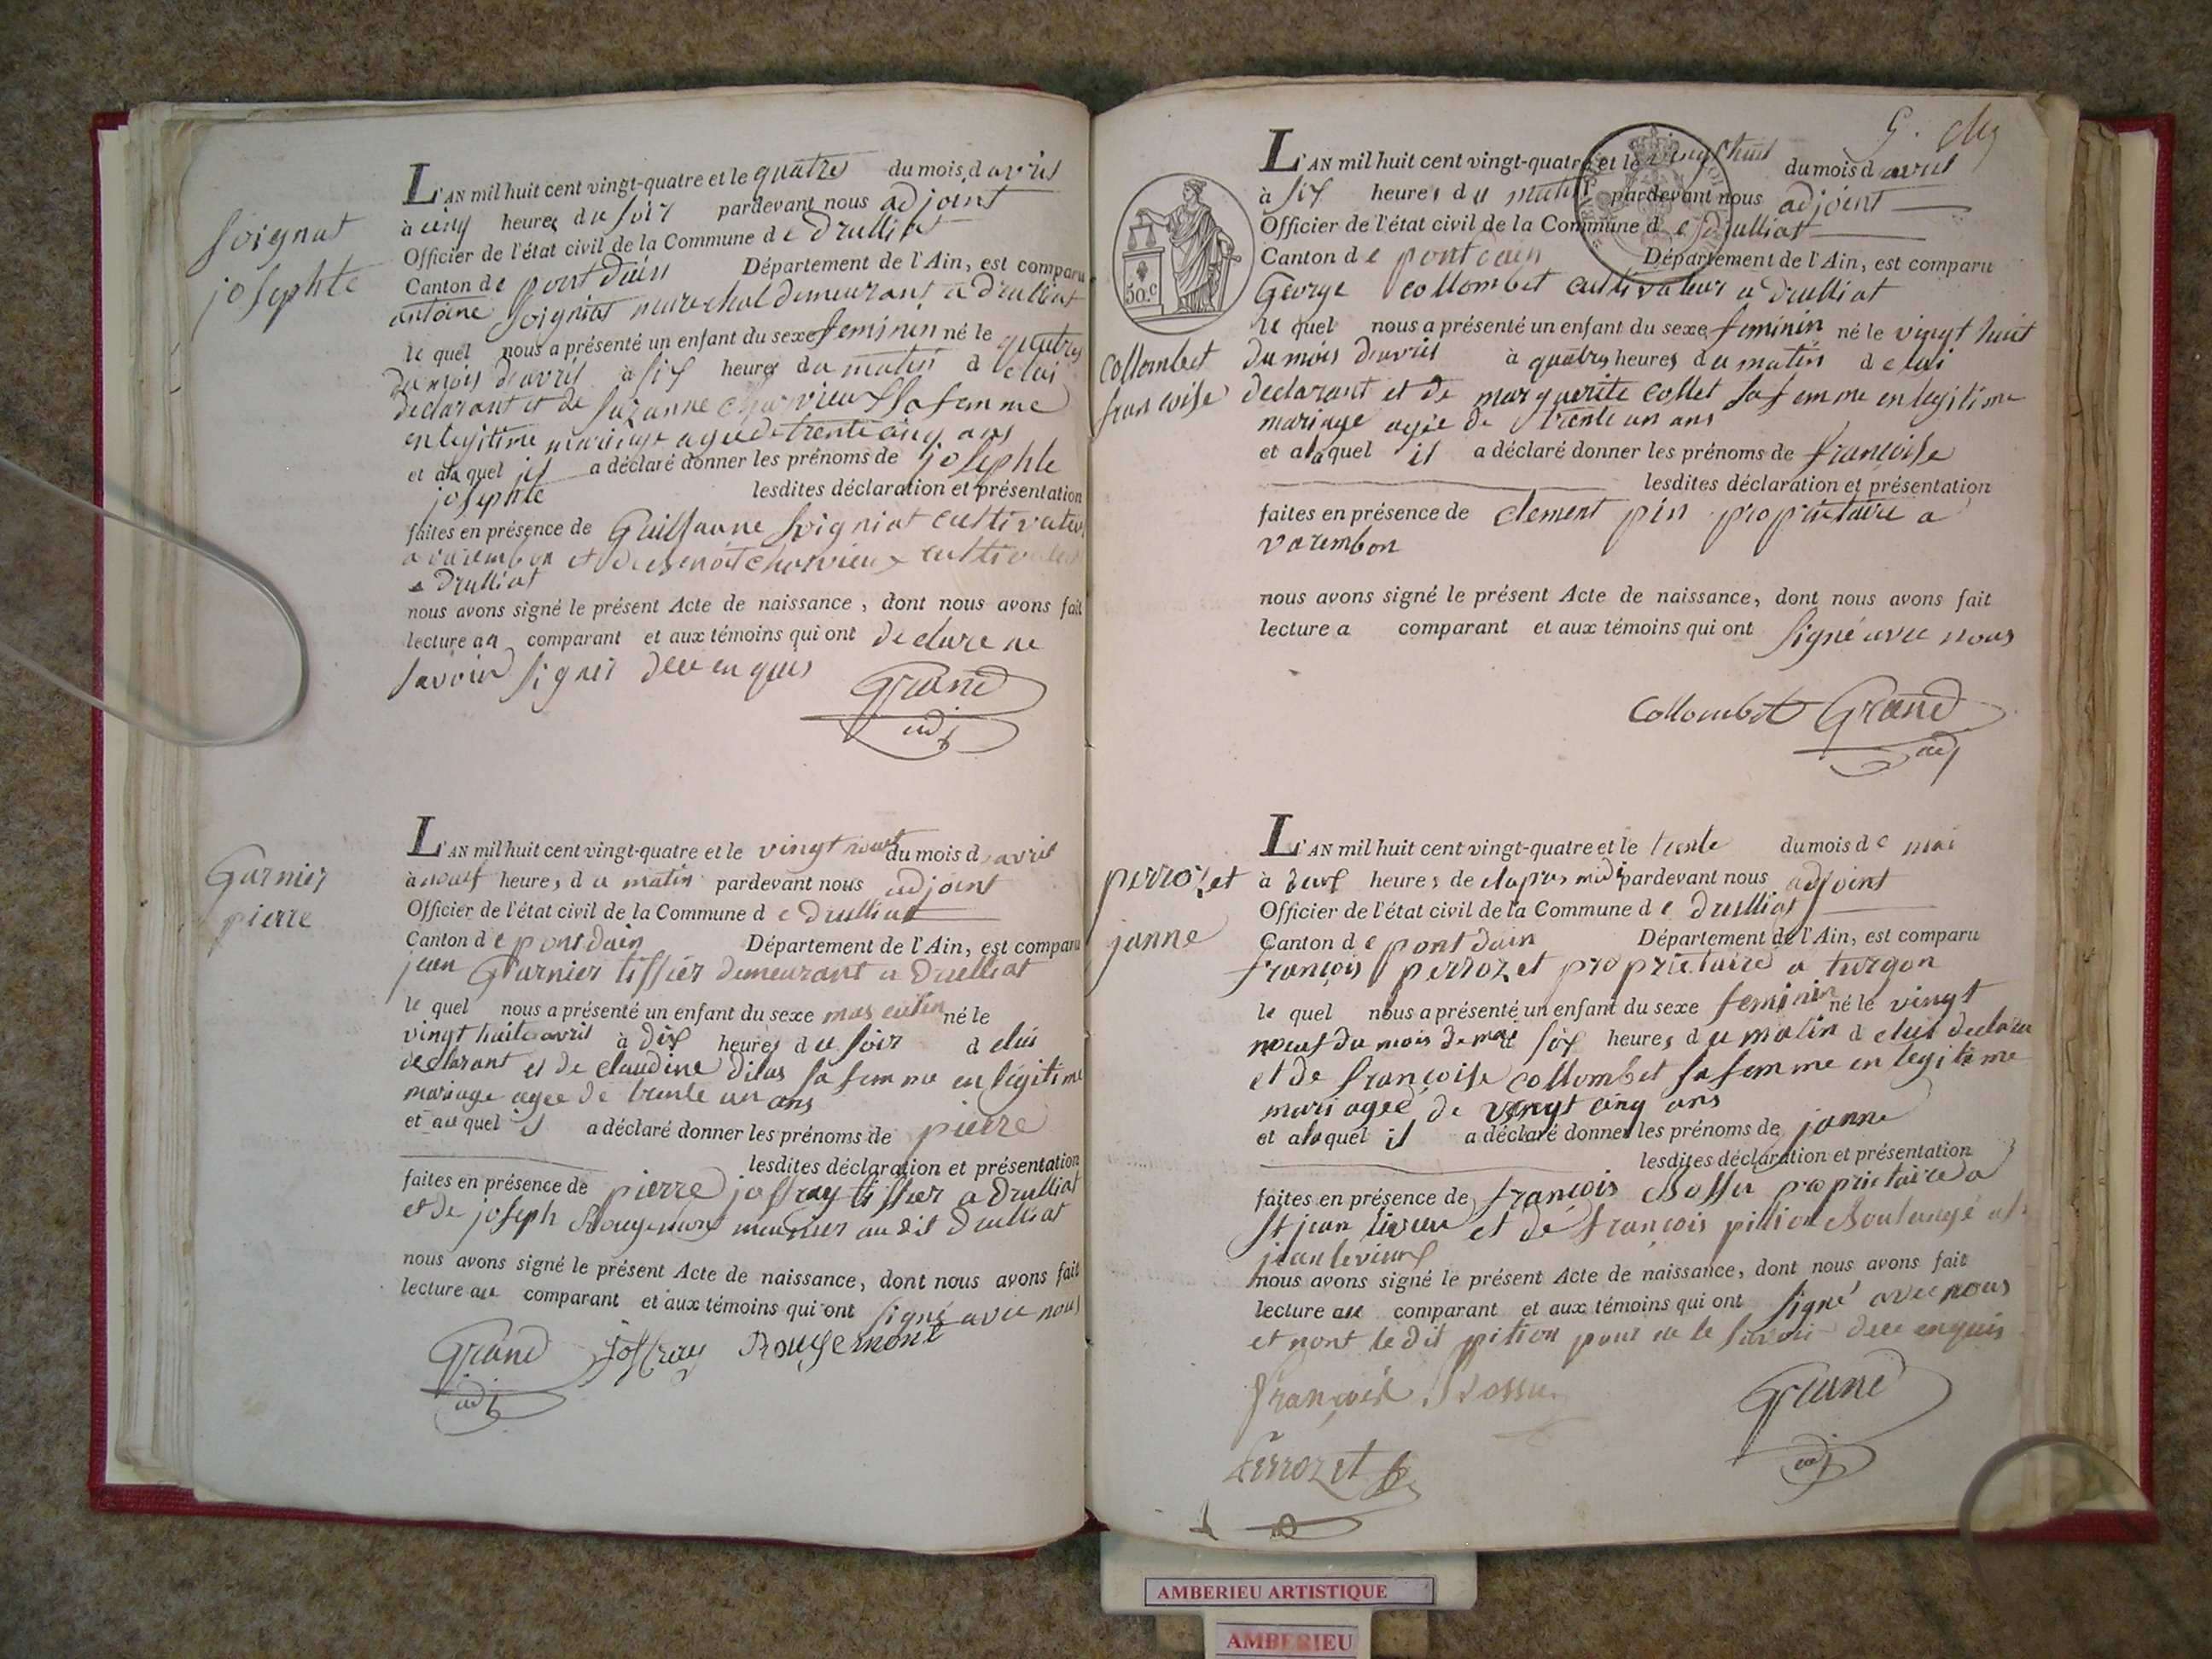 Soignat
josephte
L'AN mil huit cent vingt-quatre et le quatre du mois d avril
à cinq heures du soir pardevant nous adjoint
Officier de l'état civil de la Commune d e Drulliat
Canton de pont dain Département de l'Ain, est comparu
antoine Soigniat marechal demeurant a drulliat
le quel nous a présenté un enfant du sexe feminin né le quatre
du mois d'avril à six heures du matin d e lui
declarant et de Suzanne Charvieux sa femme
en legitime mariage agée de trente cinq ans
et ala quel il a déclaré donner les prénoms de josephte
josephte lesdites déclaration et présentation
faites en présence de Guillaume Soigniat cultivateur
a varembon et de Benoit Charvieux cultivateur
a Drulliat
nous avons signé le présent Acte de naissance, dont nous avons fait
lecture au comparant et aux témoins qui ont declare ne
savoir signer dece enquis
Grand
adj
Garnier
pierre
L'AN mil huit cent vingt-quatre et le vingt neuf du mois d avril
à neuf heures d u matin pardevant nous adjoint
Officier de l'état civil de la Commune d e Drulliat
Canton d e pont dain Département de l'Ain, est comparu
jean Garnier tissier demeurant a Drulliat
le quel nous a présenté un enfant du sexe masculin né le
vingt huit avril à dix heures d u soir d elui
declarant et de claudine dilas sa femme en légitime
mariage agee de trente un ans
et au quel il a déclaré donner les prénoms de pierre
lesdites déclaration et présentation
faites en présence de pierre joffray tissier a Drulliat
et de joseph Rougemont meunier au dit Drulliat
nous avons signé le présent Acte de naissance, dont nous avons fait
lecture au comparant et aux témoins qui ont signé avec nous
Grand joffray Rougemont
adj
5.
L'AN mil huit cent vingt-quatre et le vingt huit du mois d avril
à six heures d u matin pardevant nous adjoint
Officier de l'état civil de la Commune d e Drulliat
Canton d e pont dain Département de l'Ain, est comparu
50.c
George Collombet cultivateur a Drulliat
le quel nous a présenté un enfant du sexe feminin né le vingt huit
Collombet
francoise
du mois d'avril à quatre heures d u matin d e lui
declarant et de marguerite Collet sa femme en legitime
mariage agée de trente un ans
et alaquel il a déclaré donner les prénoms de françoise
lesdites déclaration et présentation
faites en présence de clement pin propriétaire a
varembon
nous avons signé le présent Acte de naissance, dont nous avons fait
lecture a comparant et aux témoins qui ont signé avec nous
Collombet Grand
adj
perrozet
janne
L'AN mil huit cent vingt-quatre et le trente du mois d e mai
à deux heures de elapres midi pardevant nous adjoint
Officier de l'état civil de la Commune d e Drulliat
Canton d e pont dain Département de l'Ain, est comparu
François perrozet propriétaire a turgon
le quel nous a présenté un enfant du sexe feminin né le vingt
neuf du mois de mai à six heures d u matin d elui declara
et de françoise collombet sa femme en legitime
mari agée de vingt cinq ans
et alaquel il a déclaré donner les prénoms de janne
lesdites déclaration et présentation
faites en présence de françois Bossu propriétaire a
St jean et de françois pition Boulangé a
jean levieux
nous avons signé le présent Acte de naissance, dont nous avons fait
lecture au comparant et aux témoins qui ont signé avec nous
et nont le dit pition pour ne le savoir dece enquis
françois Bossu
Grand
Perrozet
adj
AMBERIEU ARTISTIQUE
AMBERIEU